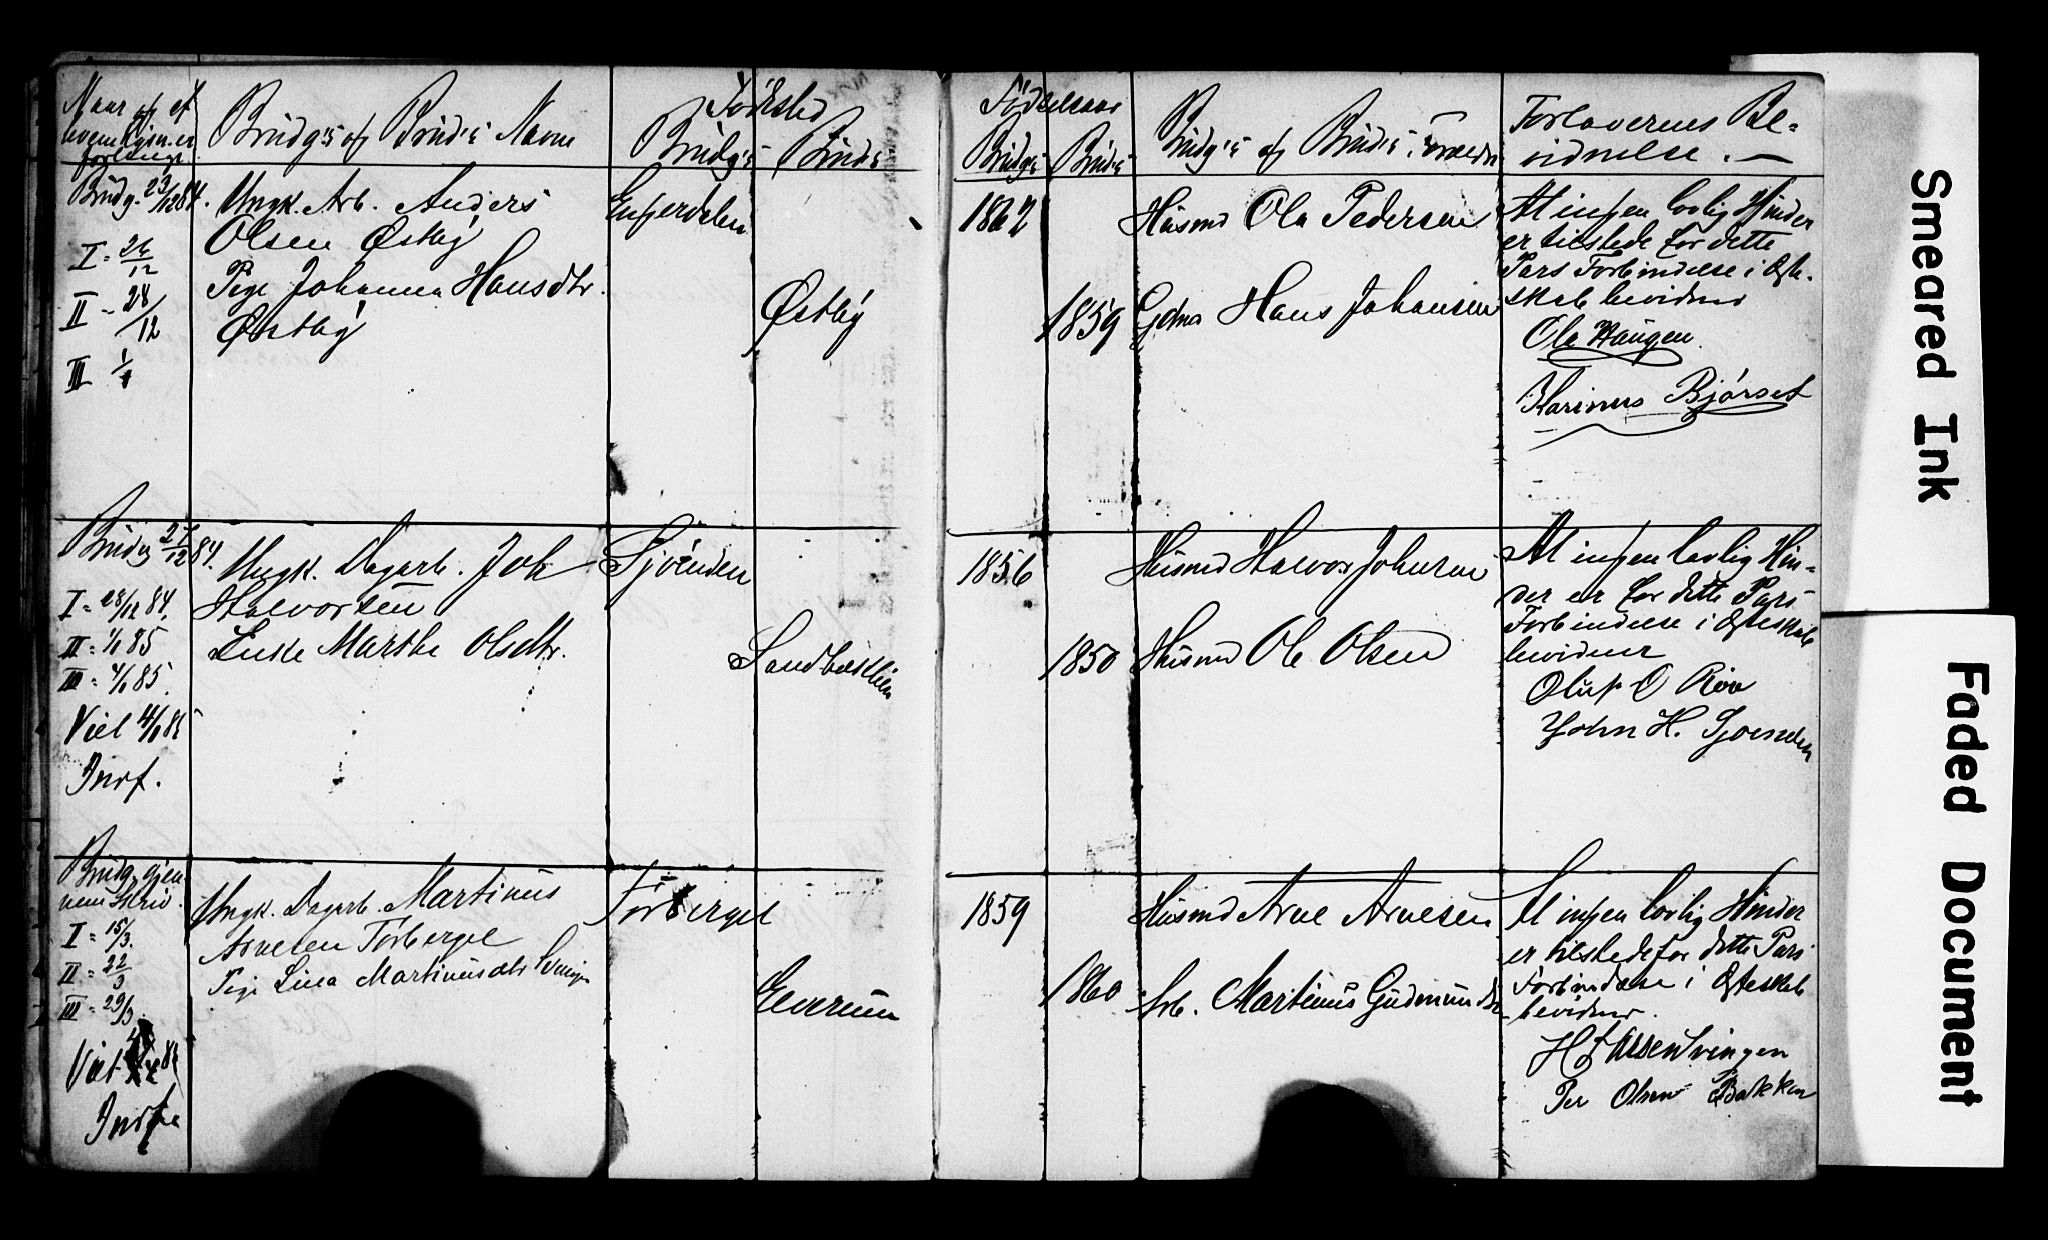 Naar og af
hvem Lysn. er
forlangt
Brudg's og Brud's Navne
Fødested
Brudg's Brud's
Fødselsaar
Brudg's Brud's
Brudg's og Brud's Forældre
Forlovernes Be-
vidnelse. —
Brudg. 23/12 84.
I = 26/12
II - 28/12
III 1/1
Ungk. Arb. Anders
Olsen Østby
Pige Johanna Hansdtr.
Østby
Engerdalen
Østby
1862
1859
Husmd Ola Pedersen
Gdma Hans Johansen
At ingen lovlig Hinder
er tilstede for dette
Pars Forbindelse i Ægte-
skab bevidner
Ola Haugen
Karinus Bjørset
Brudg 27/12 84.
I = 28/12 84.
II = 1/1 85
III = 4/1 85.
Viel 4/1 85
Indf.
Ungk. Dagarb. Joh
Halvorsen
Enke Marthe Olsdtr.
Sjøenden
Sandbæklien
1856
1850
Husmd Halvor Johnsen
Husmd Ole Olsen
At ingen lovlig Hin-
der er for dette Pars
Forbindelse i Ægteskab
bevidner
Oluf O Røe
John H. Sjøenden
Brudg. gjen-
nem Skriv.
I = 15/3.
II = 22/3
III = 29/3.
Viet
Indf
Ungk. Dagarb. Martinus
Arnesen Førberget
Pige Lina Martinusdtr
Førberget
Elverum
1859
1860
Husmd Arne Arnesen
Arb. Martinus Gudmundsen
At ingen lovlig Hinder
er tilstede for dette Pars
Forbindelse i Ægteskab
bevidner.
H Larsen Svingen
Per Olsen Bakken
Smeared Ink
Faded Document